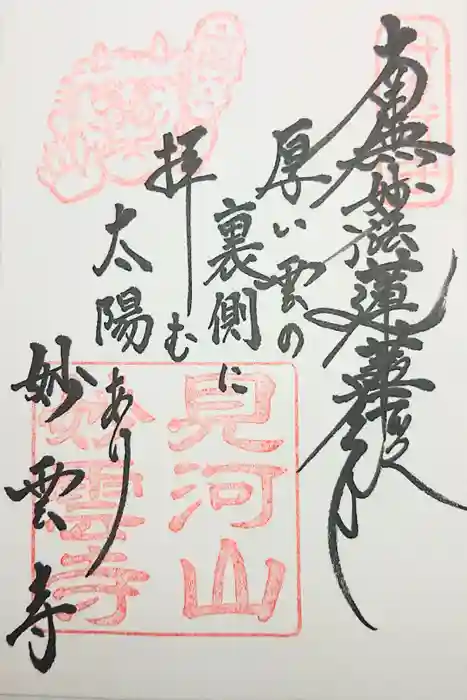 南無妙法蓮華経
厚い雲の
裏側に
拝む
太陽
あり
妙雲寺
見河山
妙雲寺